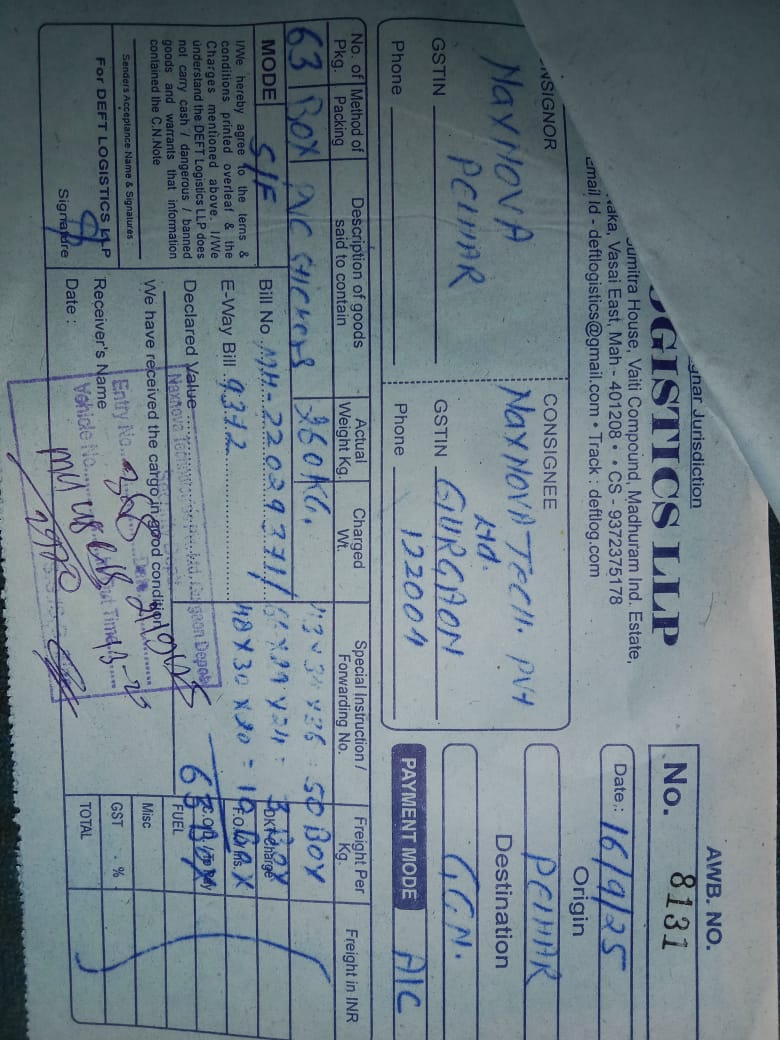 gnar Jurisdiction
AWB. NO.
OGISTICS LLP
No. 8131
umitra House, Vaiti Compound, Madhuram Ind. Estate,
aka, Vasai East, Mah - 401208 • • CS - 9372375178
email Id - deftlogistics@gmail.com • Track : deftlog.com
Date.: 16/9/25
NSIGNOR
CONSIGNEE
Origin
NAXNOVA
PELHAR
NAXNOVA TECH. PVT
Ltd.
PELHAR
Destination
GSTIN
GSTIN GURGAON
GGN.
Phone
Phone 122004
PAYMENT MODE A/C
No. of Pkg.
Method of Packing
Description of goods said to contain
Actual Weight Kg.
Charged Wt.
Special Instruction / Forwarding No.
Freight Per Kg.
Freight in INR
63 BOX PVC STICKERS 960 KG.
50 BOX
MODE S/F
Bill No MH-22029371/
3 BOX
E-Way Bill 9372
48 X 30 X 20 = 10 BOX
I/We hereby agree to the terns &
conditions printed overleaf & the
Charges mentioned above. I/We
understand the DEFT Logistics LLP does
not carry cash / dangerous / banned
goods and warrants that information
contained the C.N.Note
Declared Value
FUEL
We have received the cargo in good condition
Misc
Senders Acceptance Name & Signatures
GST %
For DEFT LOGISTICS LLP
Receiver's Name
TOTAL
Signature
Date :
Entry No.
Vehicle No.